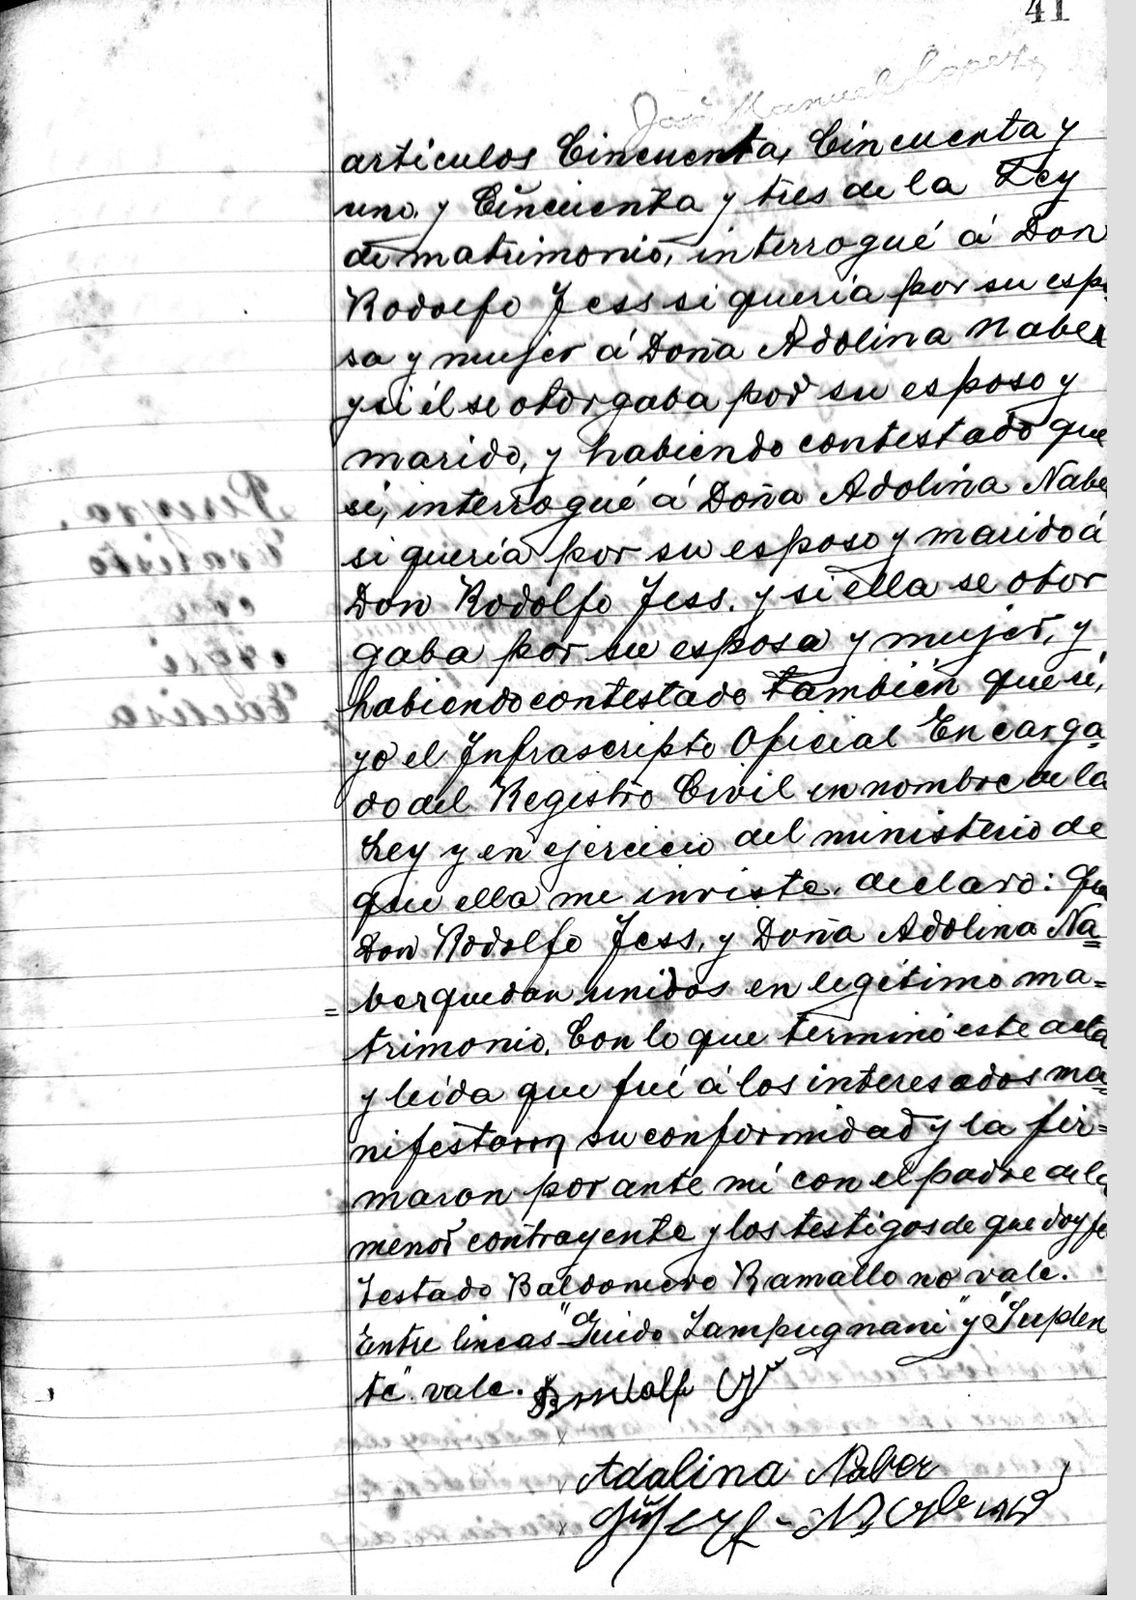 41
José Manuel Lopez
artículos Cincuenta, Cincuenta y
uno, y Cincuenta y tres de la Ley
de matrimonio, interrogué á Don
Rodolfo Jess si queria por su espo
sa y mujer á Doña Adolina Naber
y si él se otorgaba por su esposo y
marido, y habiendo contestado que
si, interrogué á Doña Adolina Nabe
si queria por su esposo y marido á
Don Rodolfo Jess. y si ella se otor
gaba por su esposa y mujer, y
habiendo contestado también que si,
yo el Infrascripto Oficial Encarga
do del Registro Civil en nombre de la
Ley y en ejercicio del ministerio de
que ella me inviste. declaro: Que
Don Rodolfo Jess, y Doña Adolina Na=
=ber quedan unidos en legítimo ma=
trimonio. Con lo que terminó este acto
y leida que fué á los interesados ma=
nifestaron su conformidad y la fir=
maron por ante mi con el padre de la
menor contrayente y los testigos de que doy fe
Testado Baldomero Ramallo no vale.
Entre lineas "Guido Lampugnani" y "Suplen
te" vale. Rudolf
Adalina Naber